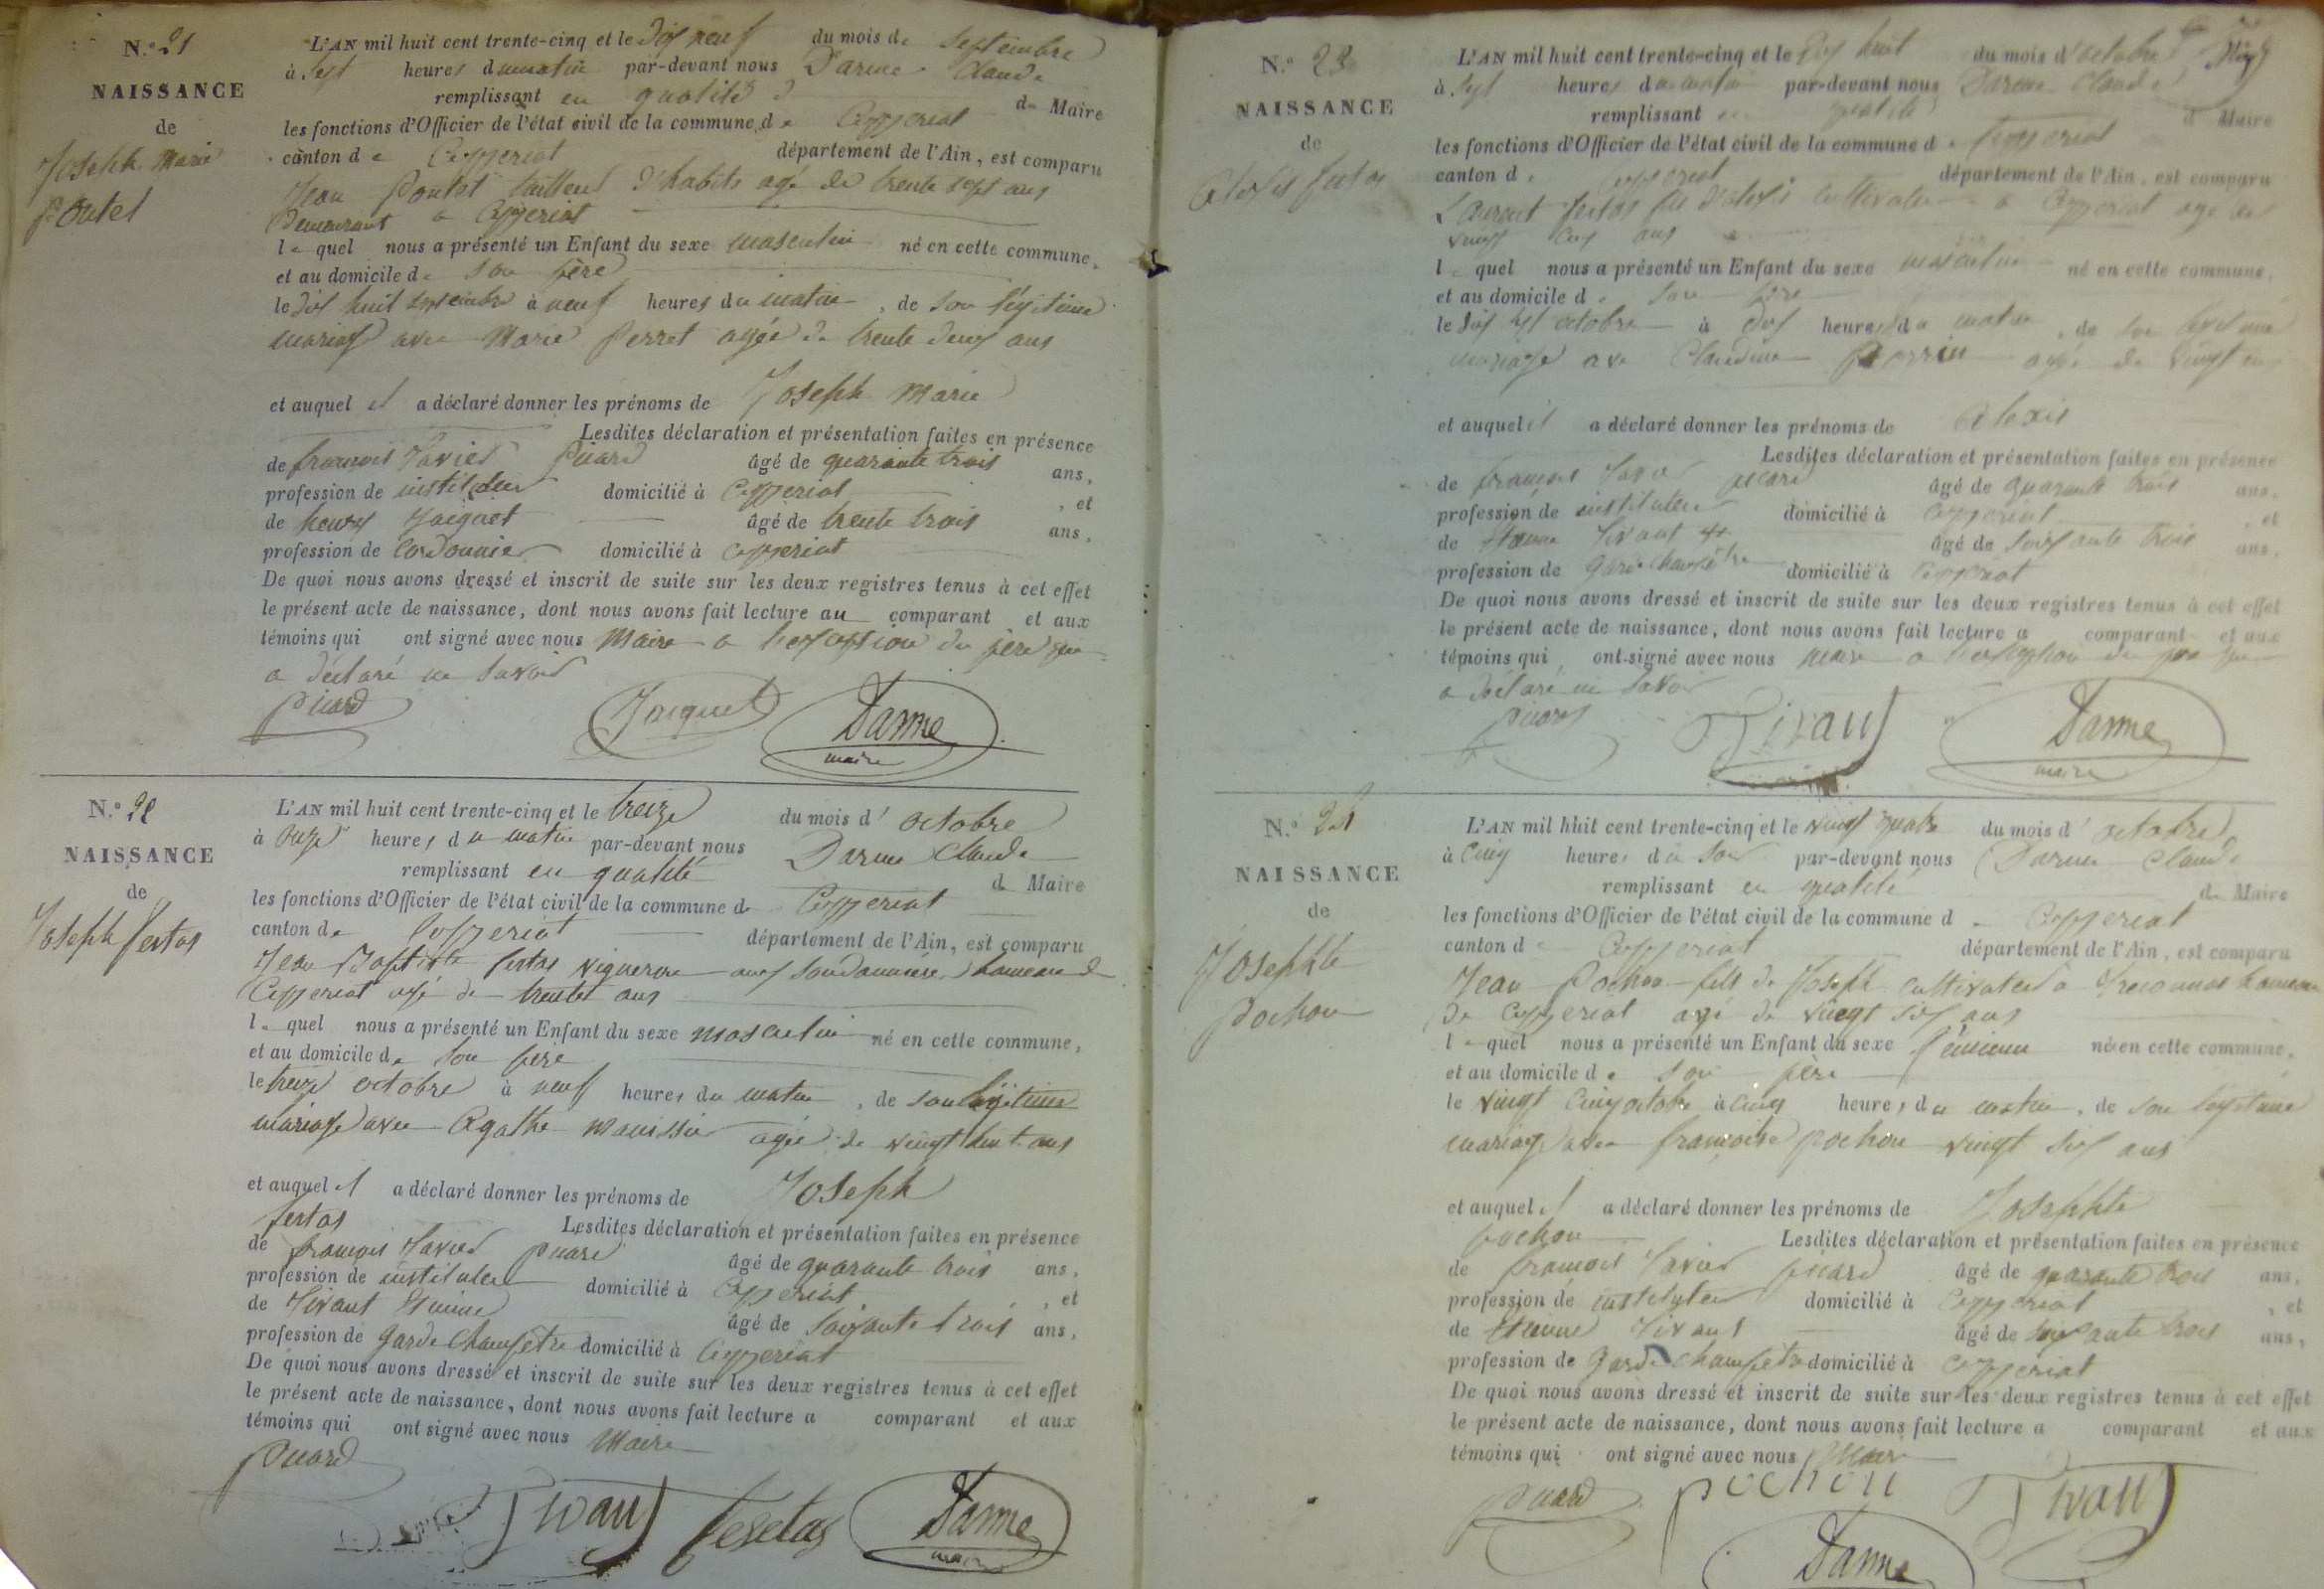 N.º 21
NAISSANCE
de
Joseph Marie
Poutet
L'AN mil huit cent trente-cinq et le dix neuf du mois de Septembre
à Sept heures du matin par-devant nous Darme Claude
remplissant en qualité de Maire
les fonctions d'Officier de l'état civil de la commune de Ceyzeriat
canton de Ceyzeriat département de l'Ain, est comparu
Jean Poutet tailleur d'habits agé de trente sept ans
Demeurant a Ceyzeriat
lequel nous a présenté un Enfant du sexe masculin né en cette commune,
et au domicile de son père
le dix huit septembre à neuf heures du matin, de son légitime
mariage avec Marie Perret agée de trente deux ans
et auquel il a déclaré donner les prénoms de Joseph Marie
Lesdites déclaration et présentation faites en présence
de françois Xavier Picard âgé de quarante trois ans,
profession de instituteur domicilié à Ceyzeriat, et
de henry Jacquet âgé de trente trois ans,
profession de Cordonnier domicilié à Ceyzeriat
De quoi nous avons dressé et inscrit de suite sur les deux registres tenus à cet effet
le présent acte de naissance, dont nous avons fait lecture au comparant et aux
témoins qui ont signé avec nous Maire a l'exception du père qui
a déclaré ne savoir
Picard Jacquet Darme
maire
N.º 22
NAISSANCE
de
Joseph fertas
L'AN mil huit cent trente-cinq et le treize du mois d'octobre
à onze heures du matin par-devant nous Darme Claude
remplissant en qualité de Maire
les fonctions d'Officier de l'état civil de la commune de Ceyzeriat
canton de Ceyzeriat département de l'Ain, est comparu
Jean Baptiste fertas vigneron hameau de
Ceyzeriat agé de trente ans
lequel nous a présenté un Enfant du sexe masculin né en cette commune,
et au domicile de son père
le treize octobre à neuf heures du matin, de son légitime
mariage avec Agathe agée de vingt huit ans
et auquel il a déclaré donner les prénoms de Joseph
fertas Lesdites déclaration et présentation faites en présence
de françois Xavier Picard âgé de quarante trois ans,
profession de instituteur domicilié à Ceyzeriat, et
de Tivant Etienne âgé de soixante trois ans,
profession de garde champêtre domicilié à Ceyzeriat
De quoi nous avons dressé et inscrit de suite sur les deux registres tenus à cet effet
le présent acte de naissance, dont nous avons fait lecture a comparant et aux
témoins qui ont signé avec nous Maire
Picard
Tivant Darme
maire
N.º 23
NAISSANCE
de
Alexis fertas
L'AN mil huit cent trente-cinq et le dix huit du mois d'octobre
à sept heures du matin par-devant nous Darme Claude
remplissant en qualité de Maire
les fonctions d'Officier de l'état civil de la commune de Ceyzeriat
canton de Ceyzeriat département de l'Ain, est comparu
Laurent fertas fils d'alexis cultivateur a Ceyzeriat agé de
vingt cinq ans
lequel nous a présenté un Enfant du sexe masculin né en cette commune,
et au domicile de son père
le dix sept octobre à dix heures du matin, de son légitime
mariage avec Claudine Perrin agée de vingt
et auquel il a déclaré donner les prénoms de Alexis
Lesdites déclaration et présentation faites en présence
de françois Xavier Picard âgé de quarante trois ans,
profession de instituteur domicilié à Ceyzeriat, et
de Etienne Tivant âgé de soixante trois ans,
profession de garde champêtre domicilié à Ceyzeriat
De quoi nous avons dressé et inscrit de suite sur les deux registres tenus à cet effet
le présent acte de naissance, dont nous avons fait lecture a comparant et aux
témoins qui ont signé avec nous maire a l'exception du père qui
a déclaré ne savoir
Picard Tivant Darme
maire
N.º 24
NAISSANCE
de
Josephte
Pochon
L'AN mil huit cent trente-cinq et le vingt quatre du mois d'octobre
à cinq heures du soir par-devant nous Darme Claude
remplissant en qualité de Maire
les fonctions d'Officier de l'état civil de la commune de Ceyzeriat
canton de Ceyzeriat département de l'Ain, est comparu
Jean Pochon fils de Joseph cultivateur a hameau
de Ceyzeriat agé de vingt six ans
lequel nous a présenté un Enfant du sexe féminin né en cette commune,
et au domicile de son père
le vingt cinq octobre à cinq heures du matin, de son légitime
mariage avec françoise Pochon vingt six ans
et auquel il a déclaré donner les prénoms de Josephte
Pochon Lesdites déclaration et présentation faites en présence
de françois Xavier Picard âgé de quarante trois ans,
profession de instituteur domicilié à Ceyzeriat, et
de Etienne Tivant âgé de soixante trois ans,
profession de garde champêtre domicilié à Ceyzeriat
De quoi nous avons dressé et inscrit de suite sur les deux registres tenus à cet effet
le présent acte de naissance, dont nous avons fait lecture a comparant et aux
témoins qui ont signé avec nous Maire
Picard Pochon Tivant
Darme